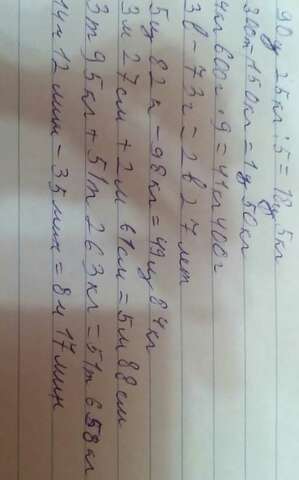 90ц 25кг : 5 = 18ц 5кг
30ст 150кг = 1ц 50кг
4кг 600г · 9 = 41кг 400г
3в - 73г = 2в 27лет
5ц 82 - 98кг = 49ц 84кг
3м 27см + 2м 61см = 5м 88см
3т 95кг + 51т 263кг = 51т 658кг
14ч 12мин - 35мин = 8ч 17мин